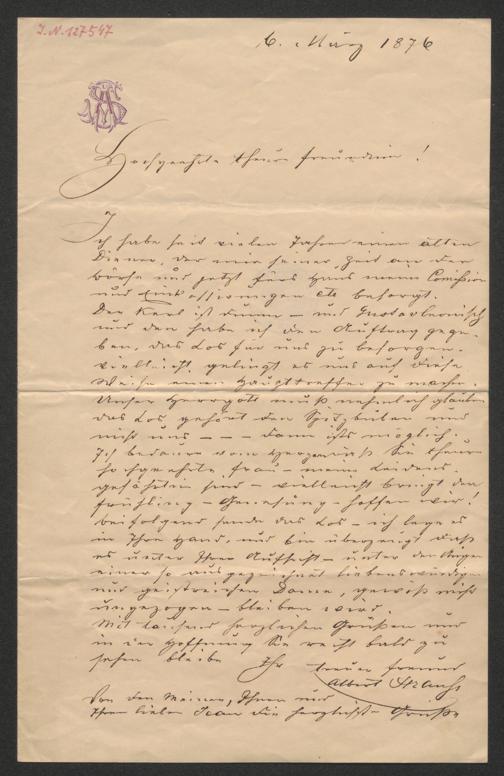 I.N. 127547
6. März 1876
Hochgeehrte theure Freundin!
Ich habe seit vielen Jahren einen alten
Diener, der mir seiner Zeit an der
Börse und jetzt fürs Haus meine Comission
und etc besorgt.
Der Kerl ist dumm – und
und den habe ich den Auftrag gege-
ben, das Los für uns zu besorgen.
vielleicht gelingt es uns auf diese
Weise einen Haupttreffer zu machen.
Unser Herrgott muß nehmlich glauben
das Los gehört den Spitzbuben und
nicht uns – – – dann ists möglich.
Ich bedaure vom Herzen Sie theure
hochgeehrte Frau – meine Leidens-
gefährtin sind – vielleicht bringt der
Frühling – Genesung – hoffen wir!
beifolgend sende das Los – ich lege es
in Ihre Hand, und bin überzeugt daß
es unter Ihrer Aufsicht – unter den Augen
einer so ausgezeichnet liebenswürdigen
und geistreichen Dame, gewiß nicht
ungezogen – bleiben wird.
Mit tausend herzlichen Grüßen und
in der Hoffnung Sie recht bald zu
sehen bleibe Ihr treuer Freund
Albert Strauß
Von den Meinen, Ihnen und
Ihren lieben Jean die herzlichsten Grüße